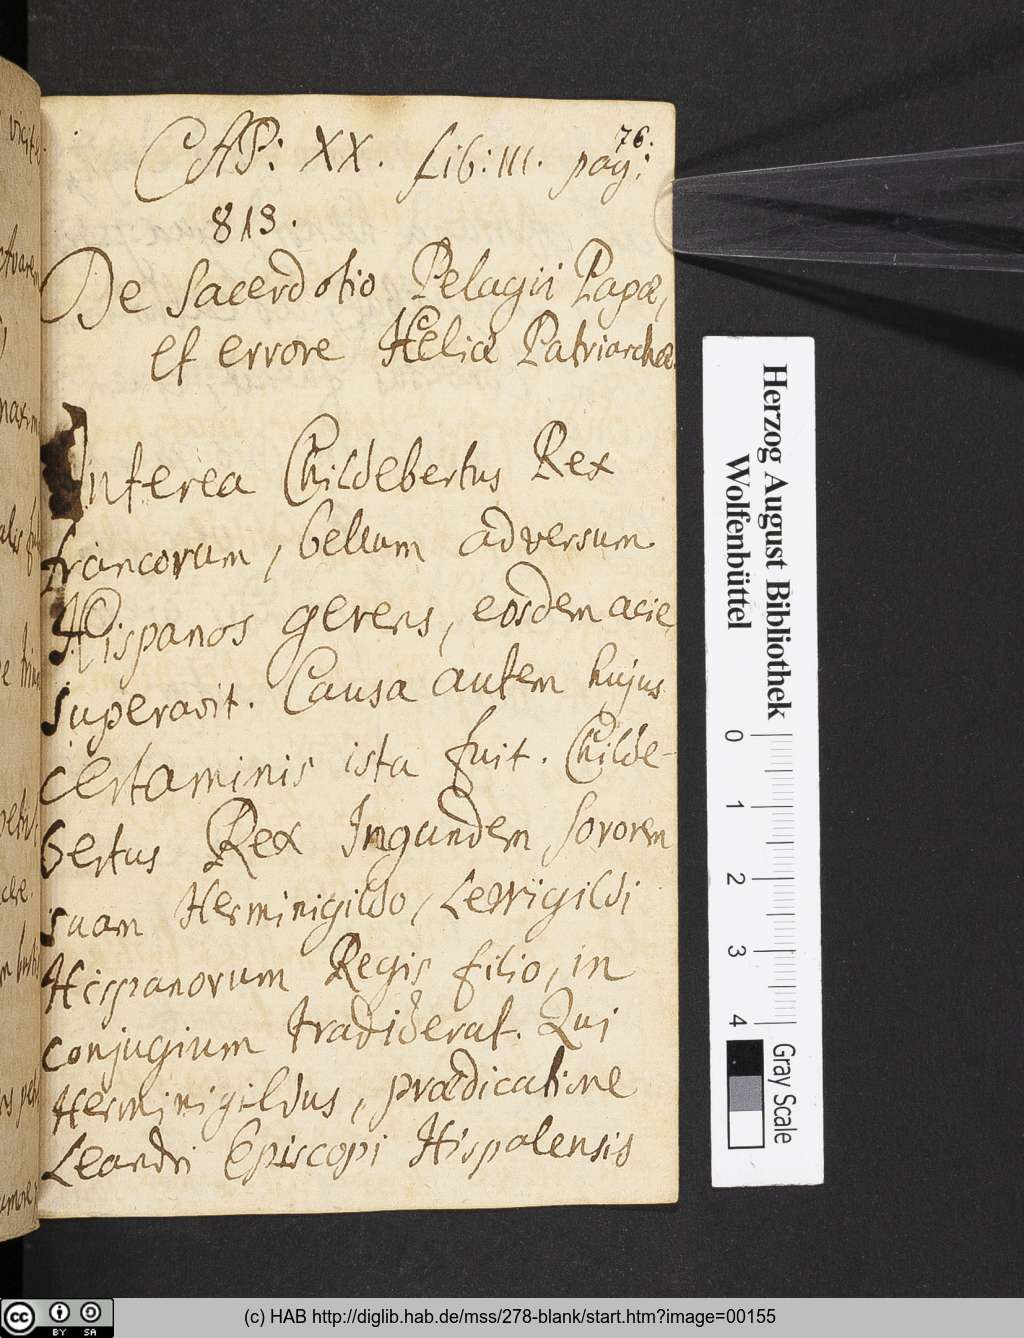 76.
CAP: XX. Lib: III. pag:
813.
De Sacerdotio Pelagii Papæ,
et errore Heliæ Patriarchæ.
Interea Childebertus Rex
francorum, bellum adversum
Hispanos gerens, eosdem acie
superavit. Causa autem hujus
certaminis ista fuit. Childe-
bertus Rex Ingundem sororem
suam Herminigildo, Lewigildi
Hispanorum Regis filio, in
conjugium tradiderat. Qui
Herminigildus, prædicatione
Leandri Episcopi Hispalensis
Herzog August Bibliothek
Wolfenbüttel
0 1 2 3 4
Gray Scale
cc BY SA
(c) HAB http://diglib.hab.de/mss/278-blank/start.htm?image=00155